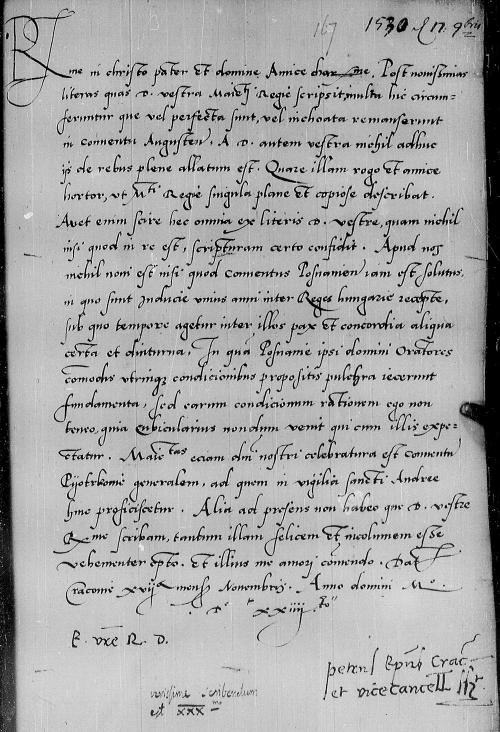 167 1530 d. 17 9bris
Rme in christo pater et domine Amice char me. Post novissimas
literas quas D. vestra Maieti Regie scripsit, multa hic circum=
feruntur que vel perfecta sunt, vel inchoata remanserunt
in conventu Augusten. A D. autem vestra nichil adhuc
ijs de rebus plene allatum est. Quare illam rogo et amice
hortor, vt Mti Regie singula plane et copiose describat.
Avet enim scire hec omnia ex literis D. vestre, quam nichil
nisi quod in re est, scripturam certo confidit. Apud nos
nichil novi est nisi quod conventus Posnanien iam est solutus,
in quo sunt inducie vnius anni inter Reges hungarie recepte,
sub quo tempore agetur inter illos pax et concordia aliqua
certa et diuturna, In qua Posnanie ipsi domini Oratores
comodis vtrinque condicionibus propositis pulchra iecerunt
fundamenta, sed earum condicionum rationem ego non
teneo, quia cubicularius nondum venit qui cum illis expe=
ctatur. Maiestas eciam dni nostri celebratura est conventum
Pijotrkovie generalem, ad quem in vigilia sancti Andree
hinc proficiscetur. Alia ad presens non habeo que D. vestre
Rme scribam, tantum illam felicem et incolumem esse
vehementer opto. et illius me amori comendo. Dat
Cracovie xvija mensis Novembris. Anno domini Mo.
Do xxiiiito
E. vre R. D.
petrus Epus Crac
et vicecancell
verissime scribendum
est xxxmo